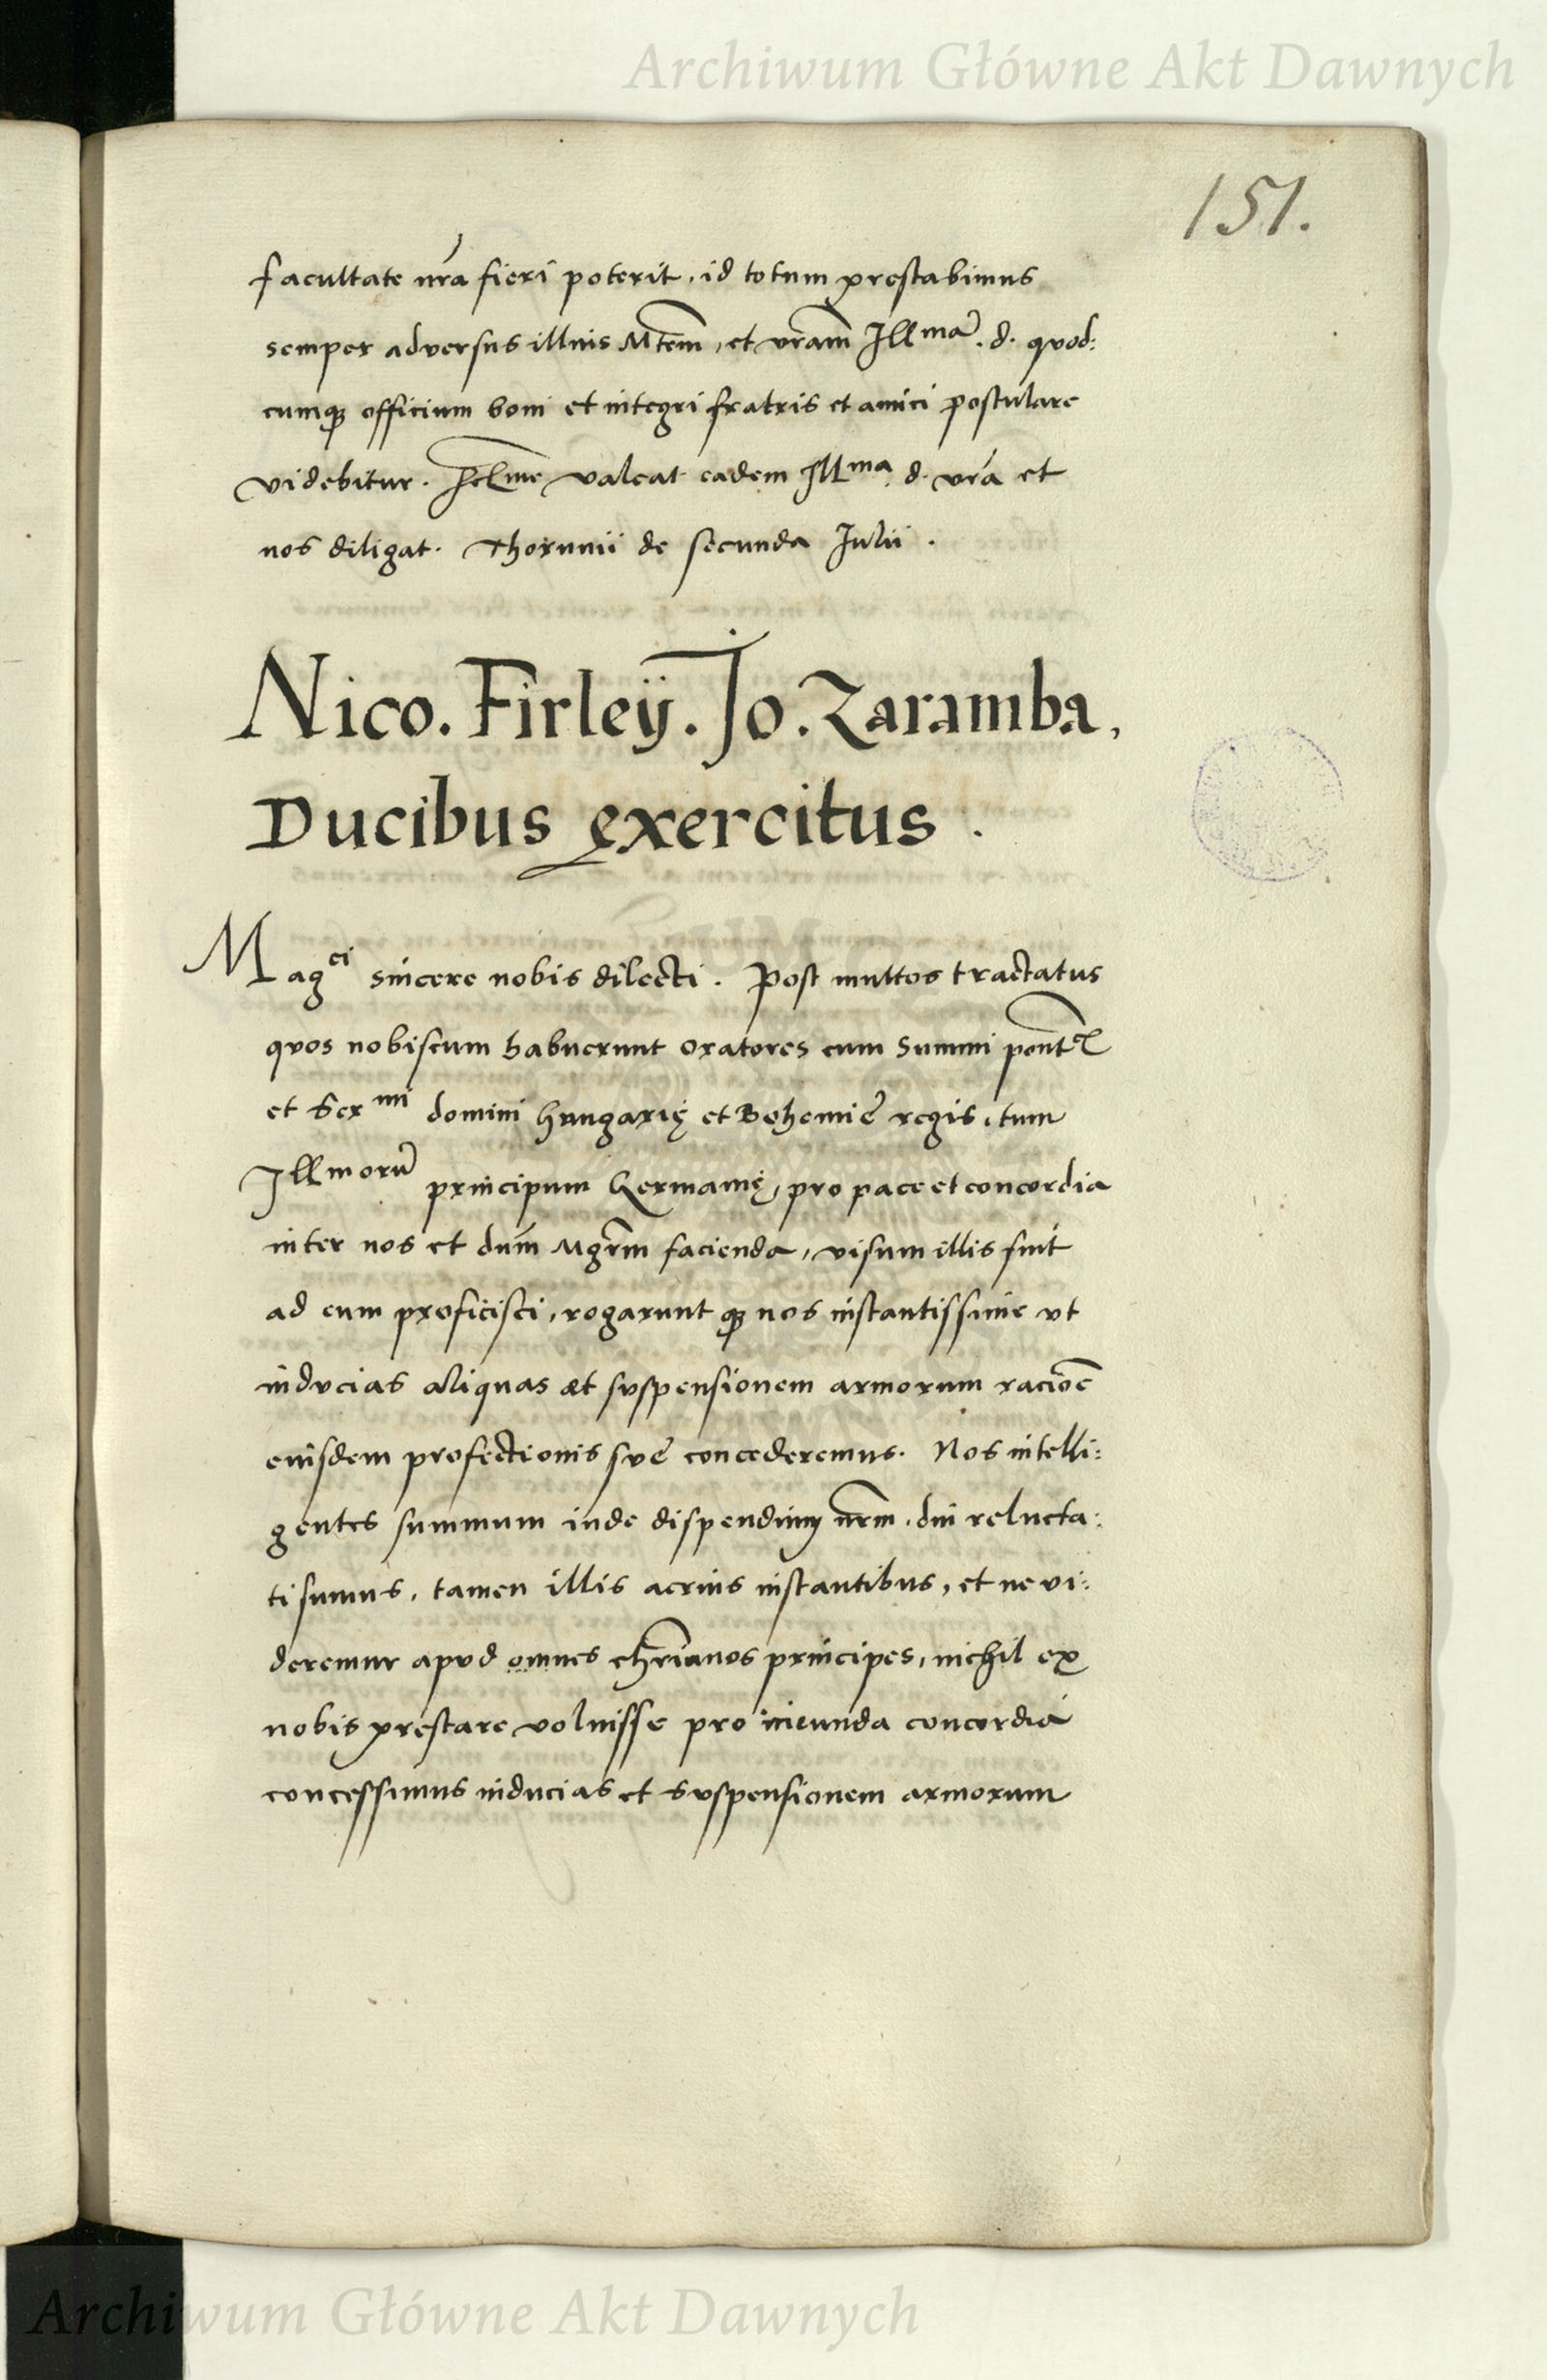 Archiwum Główne Akt Dawnych
151.
facultate nrã fieri poterit, id totum prestabimus
semper adversus illius Mtem̃, et vram̃ Illmã. d. quod:
cumqȝ officium boni et integri fratris et amici postulare
videbitur. Felme valeat eadem Illma. d. vrã et
nos diligat. Thorunii de secunda Julii.
Nico. Firleÿ. Jo. Zaramba,
Ducibus exercitus.
Magci sincere nobis dilecti. Post multos tractatus
quos nobiscum habuerunt oratores cum Summi
et Sermi domini hungarię et Bohemię regis, tum
Illmorũ principum Germanię, pro pace et concordia
inter nos et dum̃ Mgrm̃ facienda, visum illis fuit
ad eum proficisci, rogarunt qȝ nos instantissime vt
inducias aliquas et suspensionem armorum raciõe
eiusdem profectionis suę concederemus. Nos intelli:
gentes summum inde dispendium nrm̃, diu relucta:
ti sumus, tamen illis acrius instantibus, et ne vi:
deremur apud omnes chrĩanos principes, nichil ex
nobis prestare voluisse pro ineunda concordia
concessimus inducias et suspensionem armorum
Archiwum Główne Akt Dawnych